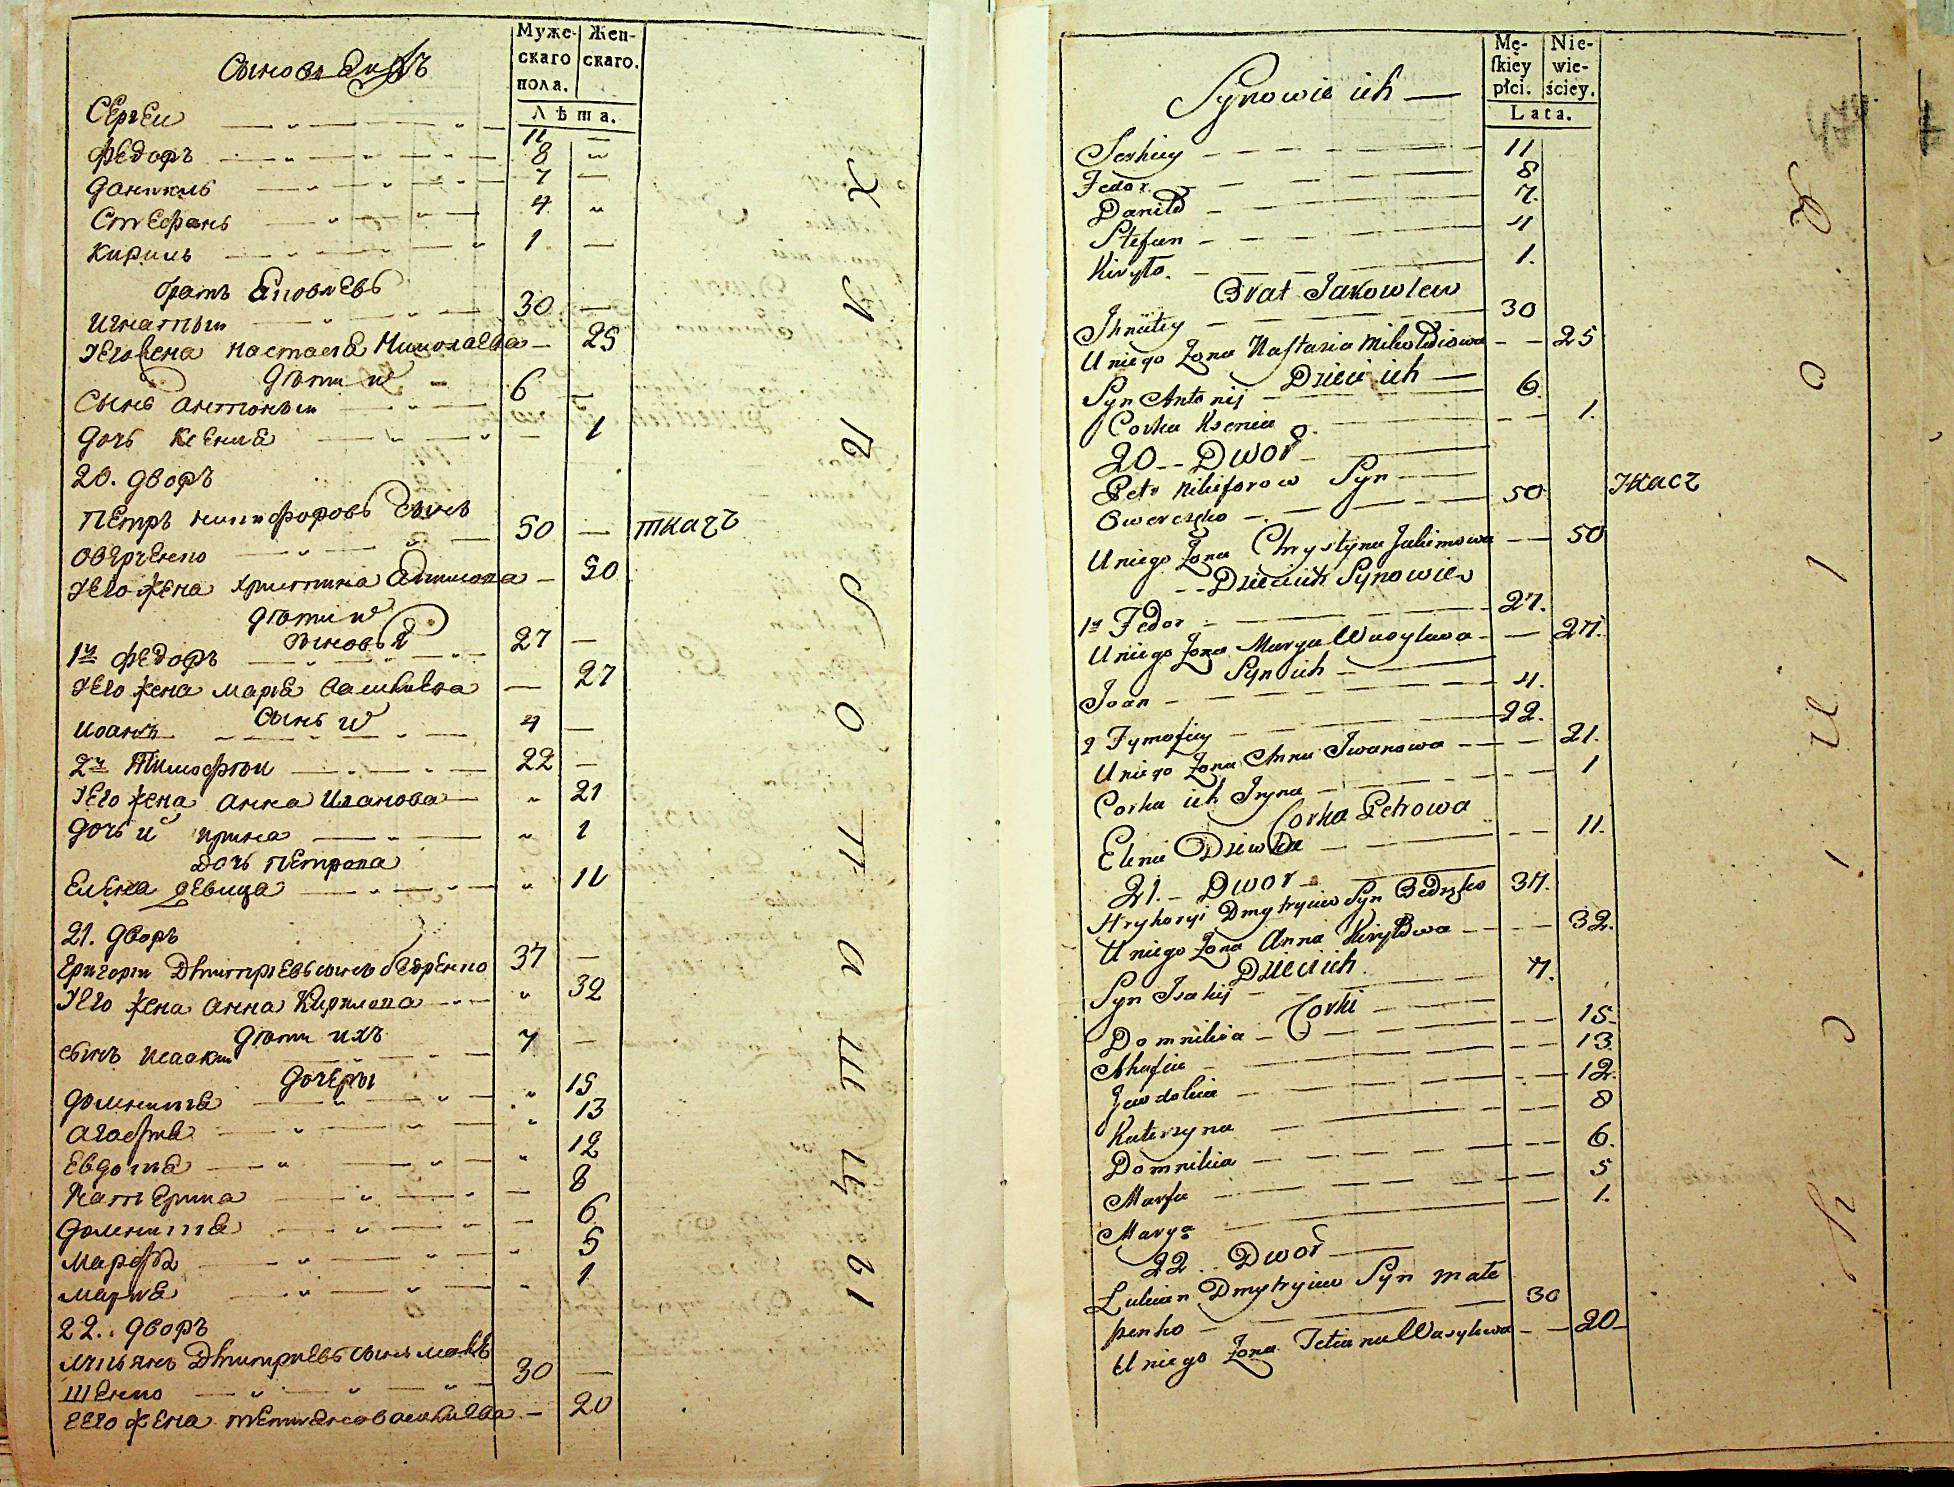 Муже- Жен-
скаго скаго.
пола.
Лѣта.
Сыновя ихъ
Сергеи 11 —
Федоръ 8 "
Данилъ 7 —
Стефанъ 4 "
Кирилъ 1 —
братъ Яковлевъ
Игнатъи 30 —
Его жена Настасия Николаева — 25
Дѣти их
Сынъ Антонъи 6 —
Дочь Ксения — 1
20. дворъ
Петръ Никифоровъ Сынъ
Оверченко 50 — ткачъ
Его жена Христина — 50
дѣти их
Сыновья
1й Федоръ 27 —
Его жена Мария Василиева — 27
Сынъ их
Иоанъ 4 —
2й Тимофѣи 22 —
Его жена Анна Иванова " 21
Дочь их Ирина " 1
Дочь Петрова
Елена девица " 11
21. дворъ
Григори Дмитриевъ сынъ 37 —
Его жена Анна Кирилова " 32
Дѣти ихъ
Сынъ Исаки 7 —
Дочеры
Домникия " 15
Агафия " 13
Евдокия " 12
Катерина — 8
Домникия — 6
Марфа " 5
Мария " 1
22.. дворъ
Лукъянъ Дмитриевъ сынъ
шенко 30 —
Его жена Василиева — 20
Х
Л
В
О
П
А
Ш
Ц
Ы
Mę- Nie-
skiey wie-
płci. ściey.
Lata.
Synowie ich —
Serhiey 11
Fedor 8
Daniło 7.
Stefan 4
Kiryło. 1.
Brat Jakowlew
Ihnatey 30
U niego Żona Nastazia Mikołaiowa — 25
Dzieci ich —
Syn Antonij 6.
Corka Ksenia 1.
20 — Dwor
Petr Nikiforow Syn
Owerczko 50 Tkacz
U niego Żona Chrystyna Jakimowa — 50
Dzieci ich Synowie
1y Fedor 27.
U niego Żona Marya Wasylewa — 27.
Syn ich —
Joan 4.
2 Tymofiey 22.
U niego Żona Anna Iwanowa — 21.
Corka ich Iryna 1
Corka Petrowa
Elena Dziewka 11.
21. — Dwor
Hryhoryi Dmytryiew Syn 37.
U niego Żona Anna Kiryłowa 32.
Dzieci ich
Syn Isakij 7.
Corki
Domnikia 15
Ahafia 13
Jewdokia 12
Katerzyna 8
Domnikia 6.
Marfa 5
Marya 1.
22.. Dwor
Lukian Dmytryiew Syn Mate
penko 30
U niego Żona Tetiana Wasylewa — 20